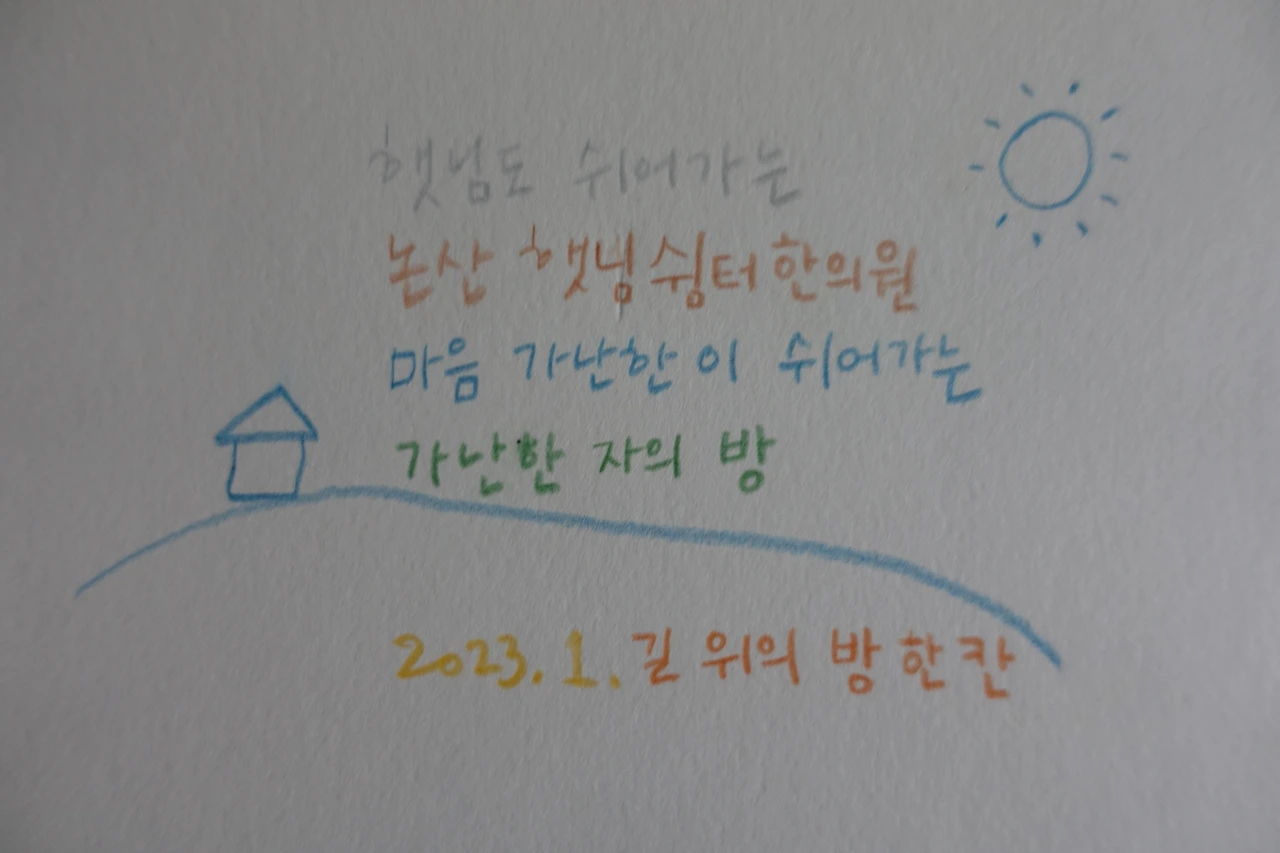 햇님도 쉬어가는
논산 햇님쉼터한의원
마음 가난한 이 쉬어가는
가난한 자의 방
2023. 1. 길 위의 방 한 칸